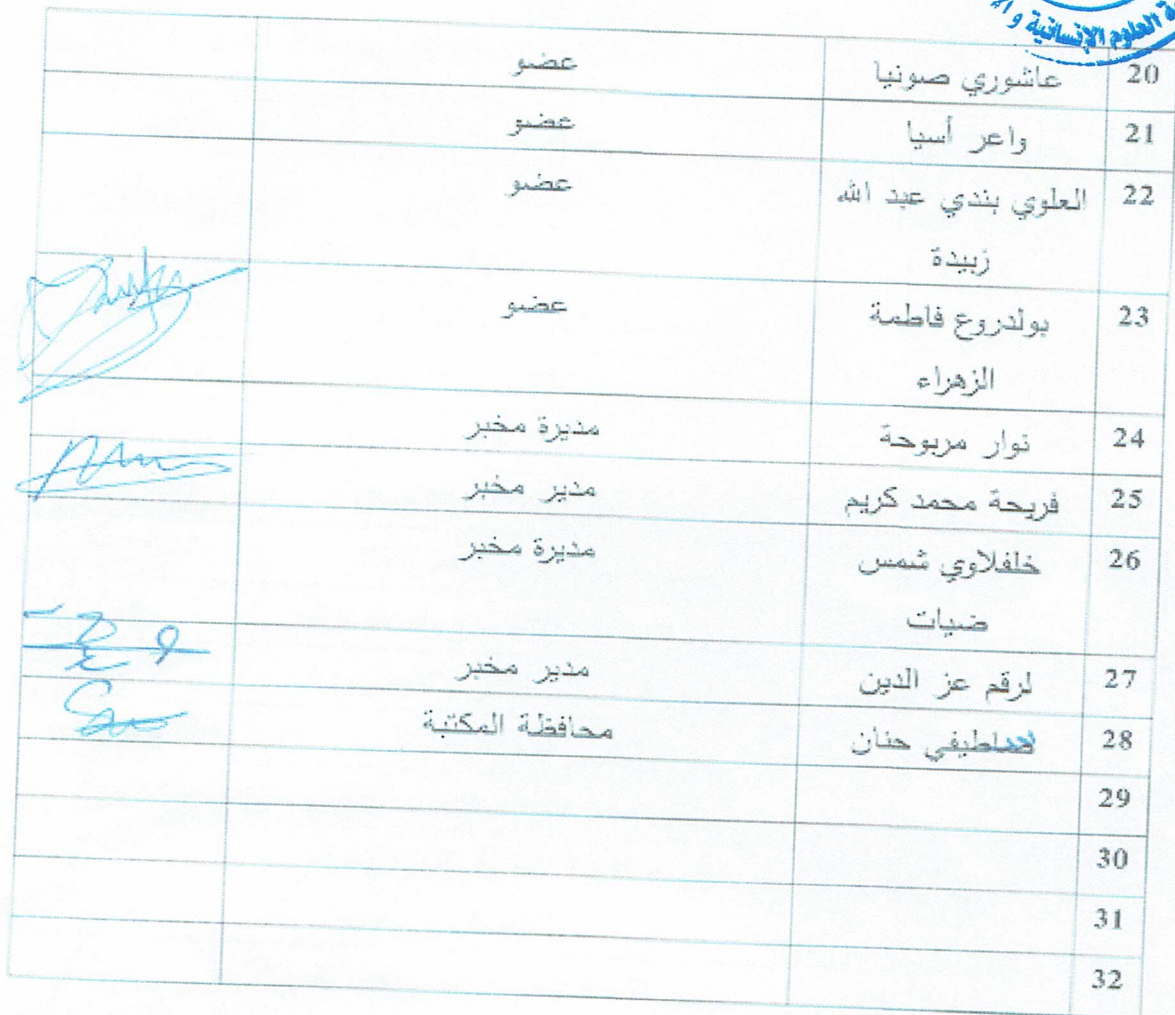 العلوم الإنسانية و
20 عاشوري صونيا عضو
21 واعر أسيا عضو
22 العلوي بندي عبد الله عضو
زبيدة
23 بولدروع فاطمة عضو
الزهراء
24 نوار مربوحة مديرة مخبر
25 فريحة محمد كريم مدير مخبر
26 خلفلاوي شمس مديرة مخبر
ضيات
27 لرقم عز الدين مدير مخبر
28 حنان محافظة المكتبة
29
30
31
32